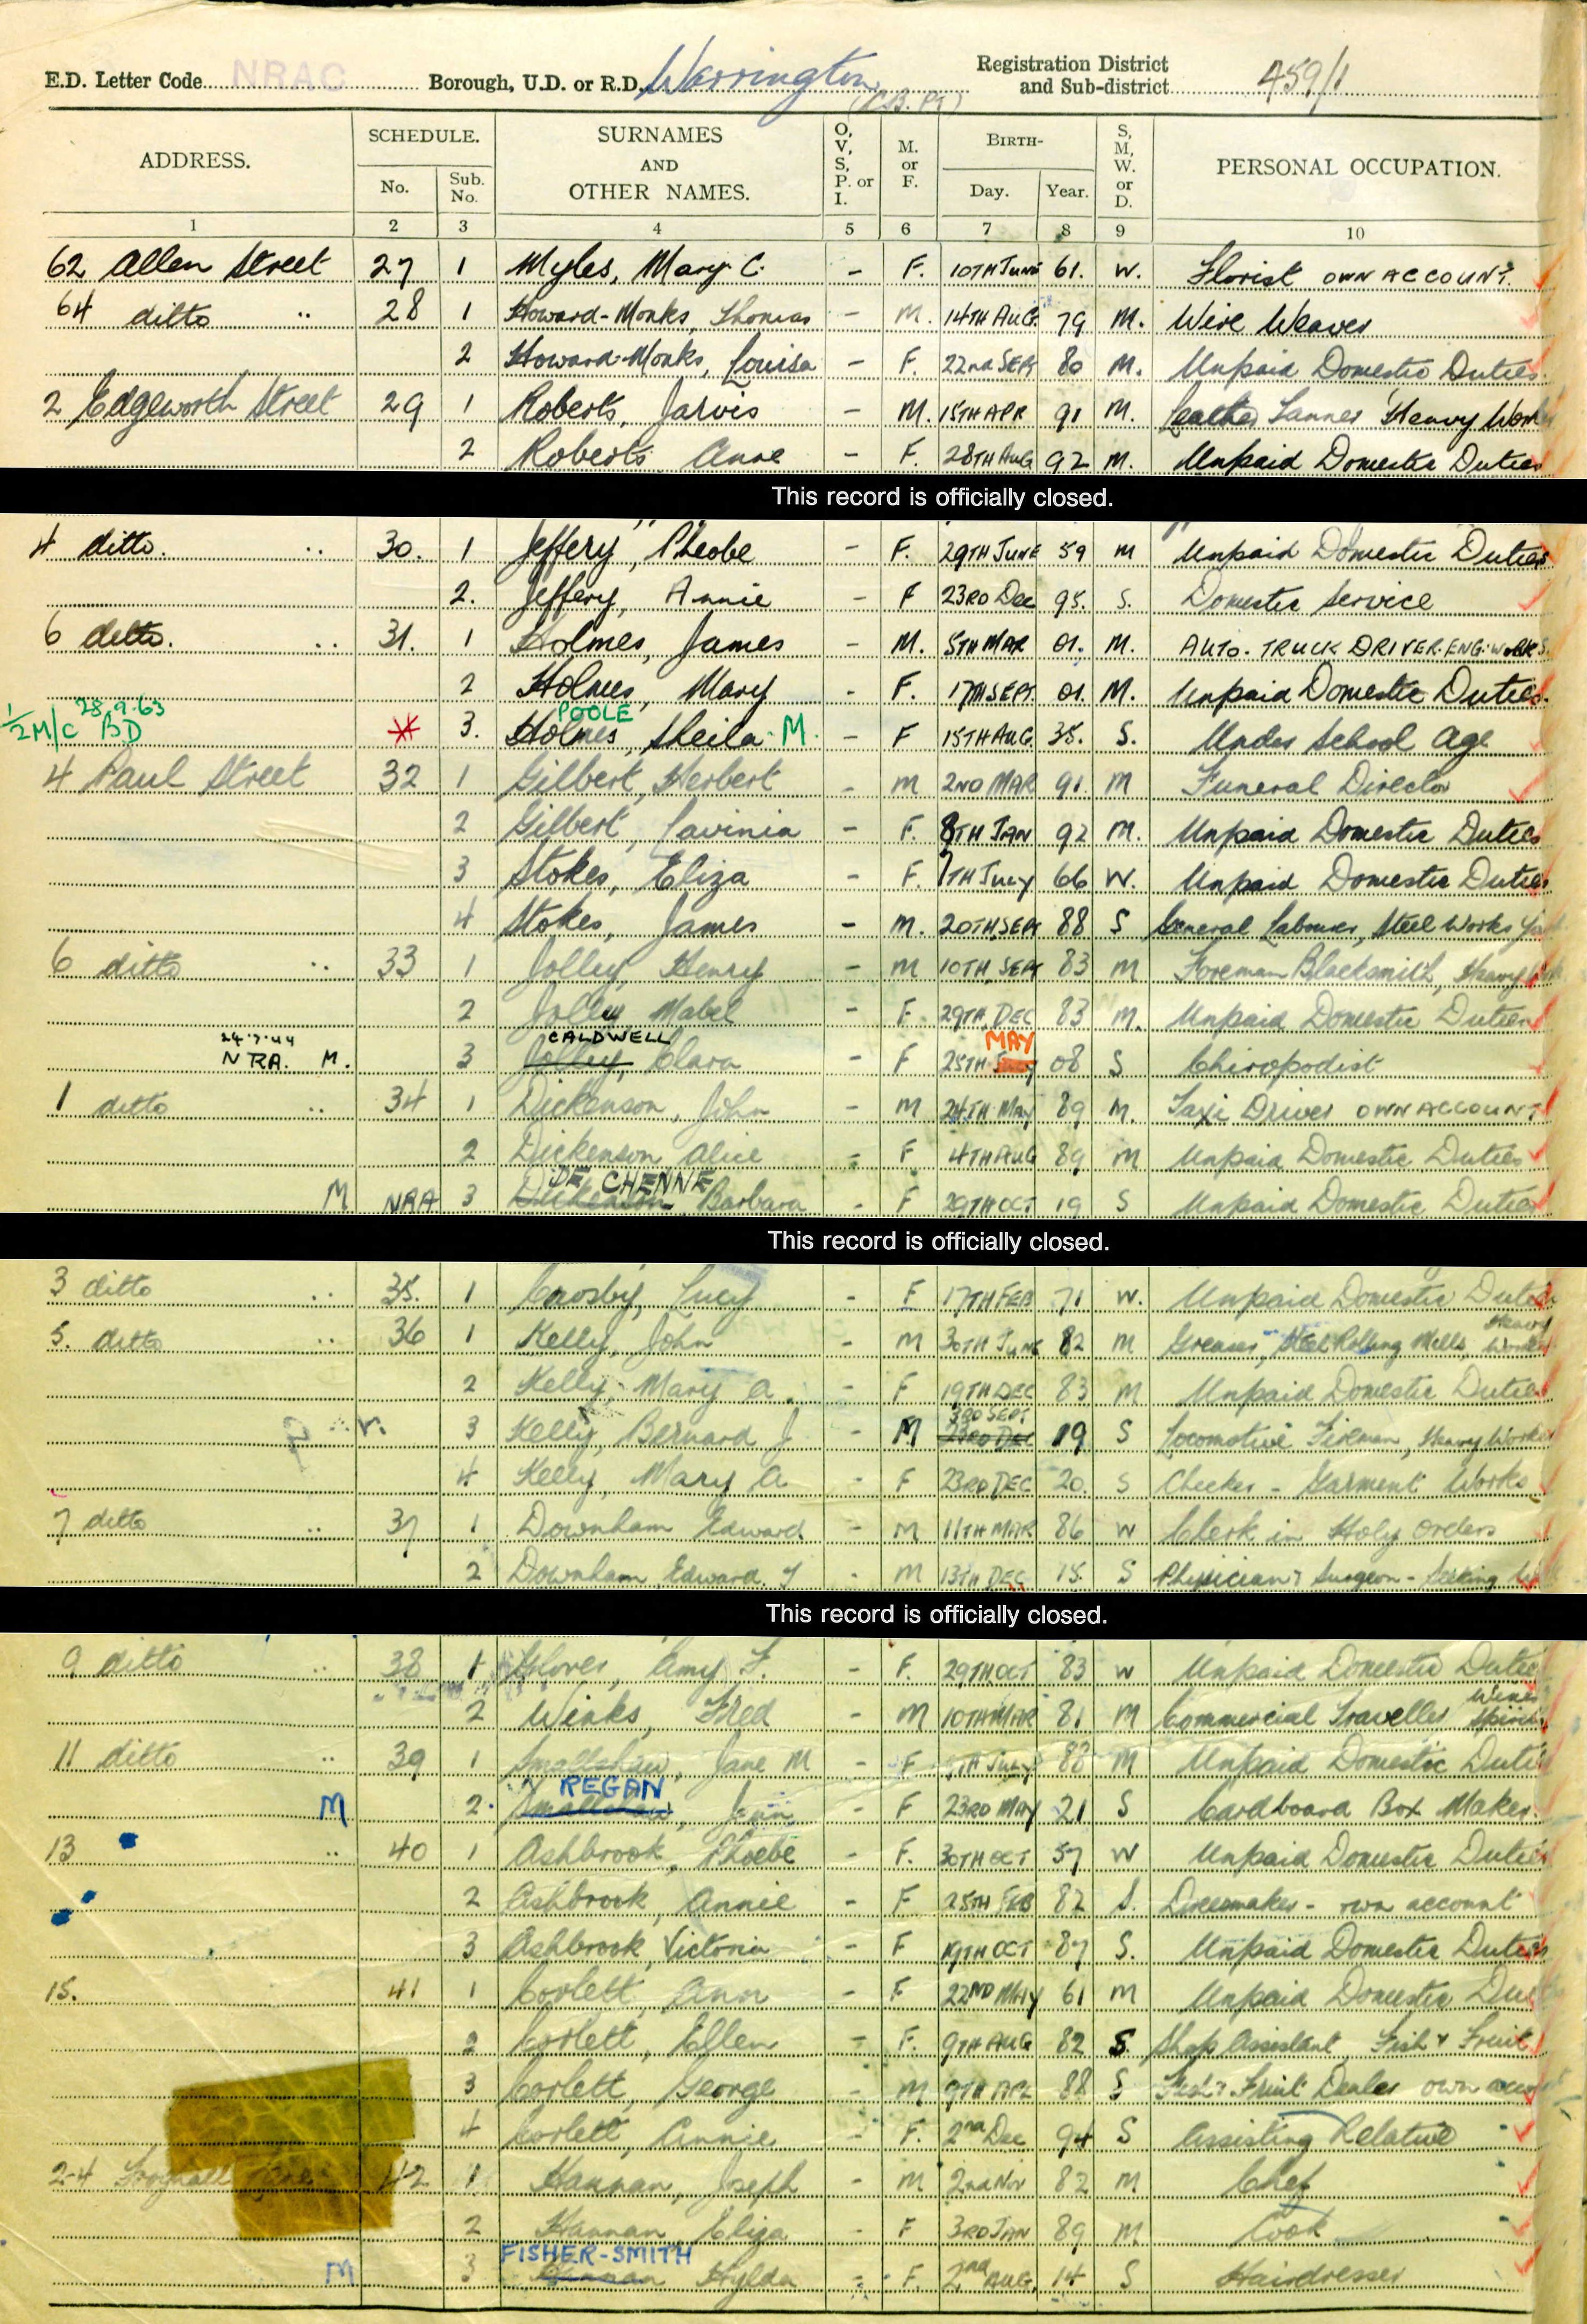 E.D. Letter Code NRAC Borough, U.D. or R.D. Warrington (C.B. Pt) Registration District and Sub-district 459/1
ADDRESS. SCHEDULE. No. Sub. No. SURNAMES AND OTHER NAMES. O, V, S, P. or I. M. or F. BIRTH- Day. Year. S, M, W. or D. PERSONAL OCCUPATION.
1 2 3 4 5 6 7 8 9 10
62 Allen Street 27 1 Myles, Mary C. - F. 10TH June 61. W. Florist OWN ACCOUNT.
64 ditto " 28 1 Howard-Monks, Thomas - M. 14TH AUG. 79 M. Wire Weaver
2 Howard-Monks, Louisa - F. 22nd SEPT 80 M. Unpaid Domestic Duties.
2 Edgeworth Street 29 1 Roberts, Jarvis - M. 15TH APR 91 M. Leather Tanner Heavy Worker
2 Roberts Anne - F. 28TH AUG 92 M. Unpaid Domestic Duties
This record is officially closed.
4 ditto. " 30. 1 Jeffery, Pheobe - F. 29TH JUNE 59 M Unpaid Domestic Duties
2. Jeffery, Annie - F 23RD Dec 95. S. Domestic Service
6 ditto. " 31. 1 Holmes, James - M. 5TH MAR 01. M. AUTO. TRUCK DRIVER. ENG. WORKS.
2 Holmes, Mary - F. 17TH SEPT. 01. M. Unpaid Domestic Duties.
1/2 M/C 28.9.63 BD * POOLE
3. Holmes, Sheila. M. - F 15TH AUG. 35. S. Under School Age
4 Paul Street 32 1 Gilbert, Herbert - M 2ND MAR 91. M Funeral Director
2 Gilbert, Lavinia - F. 8TH JAN 92 M. Unpaid Domestic Duties
3 Stokes, Eliza - F. 7TH July 66 W. Unpaid Domestic Duties
4 Stokes, James - M. 20TH SEPT 88 S General Labourer, Steel Works
6 ditto " 33 1 Jolley, Henry - M 10TH SEPT 83 M Foreman Blacksmith, Heavy
2 Jolley Mabel - F. 29TH DEC 83 M. Unpaid Domestic Duties
24.7.44 NRA. M. CALDWELL MAY
3 Jolley, Clara - F 25TH 08 S Chiropodist
1 ditto " 34 1 Dickenson, John - M 24TH May 89 M. Taxi Driver OWN ACCOUNT
2 Dickenson Alice - F 4TH AUG 89 M Unpaid Domestic Duties
DE CHENNE
M NRA 3 Dickenson Barbara - F 29TH OCT 19 S Unpaid Domestic Duties
This record is officially closed.
3 ditto " 35. 1 Crosby, Lucy - F 17TH FEB 71 W. Unpaid Domestic Duties
5. ditto " 36 1 Kelly, John - M 30TH June 82 M Greaser, Steel Rolling Mills, Heavy Worker
2 Kelly, Mary A. - F 19TH DEC 83 M Unpaid Domestic Duties
3RD SEPT
3 Kelly, Bernard J - M 23RD DEC 19 S Locomotive Fireman, Heavy Worker
4 Kelly, Mary A - F 23RD DEC 20. S Checker - Garment Works
7 ditto " 37 1 Downham Edward - M 11TH MAR 86 W Clerk in Holy Orders
2 Downham, Edward. - M 13TH DEC 15. S Physician & Surgeon - Seeking
This record is officially closed.
9 ditto " 38 1 Glover, Amy F. - F. 29TH OCT 83 W Unpaid Domestic Duties
2 Winks, Fred - M 10TH MAR 81 M Commercial Traveller Wines Spirits
11 ditto " 39 1 Smallshaw, Jane M - F July 88 M Unpaid Domestic Duties
REGAN
M 2. Smallshaw, Jean - F 23RD MAY 21 S Cardboard Box Maker.
13 " 40 1 Ashbrook, Phoebe - F. 30TH OCT 57 W Unpaid Domestic Duties
2 Ashbrook, Annie - F 25TH FEB 82 S. Dressmaker - own account
3 Ashbrook, Victoria - F 19TH OCT 87 S. Unpaid Domestic Duties
15. 41 1 Corlett, Ann - F 22ND MAY 61 M Unpaid Domestic Duties
2 Corlett, Ellen - F. 9TH AUG 82 S. Shop Assistant Fish & Fruit
3 Corlett, George - M 9TH APL 88 S Fish & Fruit Dealer own account
4 Corlett, Annie - F. 2nd Dec 94 S Assisting Relative
2-4 42 1 Hannan, Joseph - M 2nd Nov 82 M Chef
2 Hannan Eliza - F 3RD JAN 89 M Cook
FISHER-SMITH
M 3 Hannan Hylda - F. 2nd AUG. 14 S Hairdresser